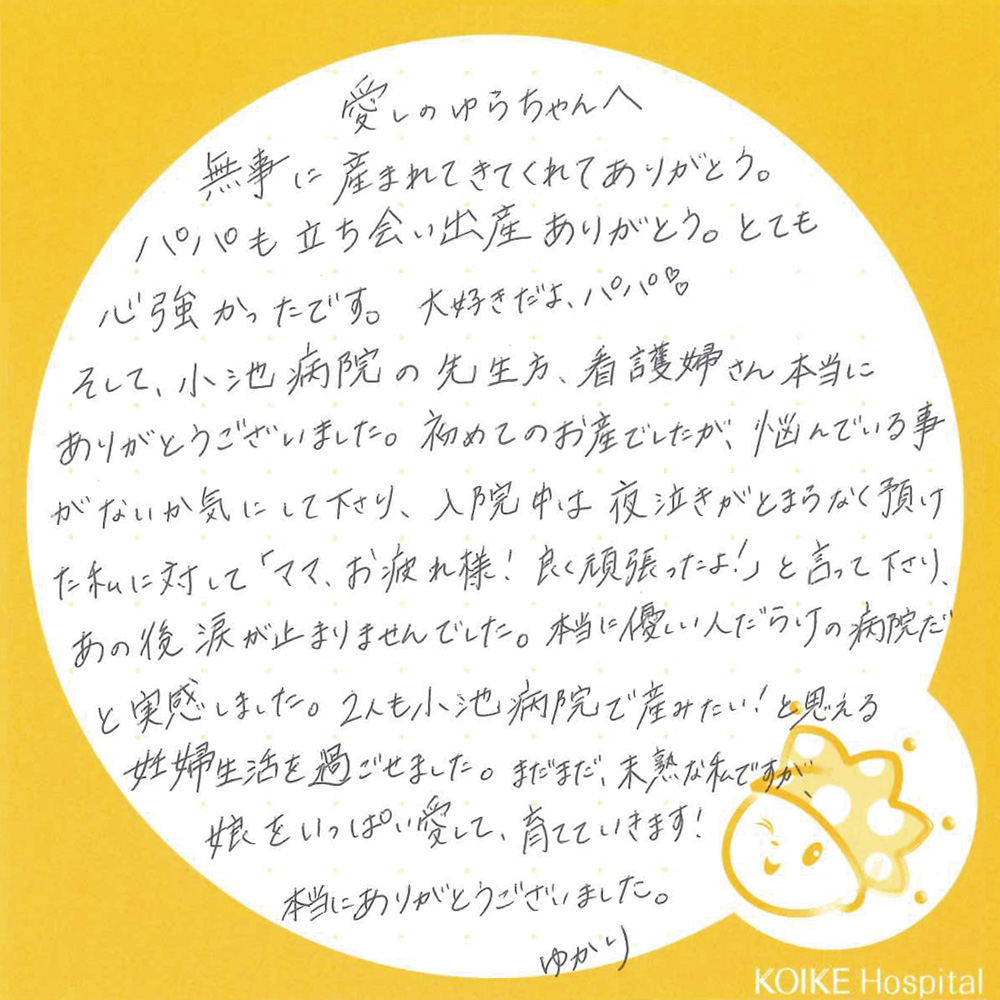 愛しのゆらちゃんへ
無事に産まれてきてくれてありがとう。
パパも立ち会い出産ありがとう。とても
心強かったです。大好きだよ、パパ♡
そして、小池病院の先生方、看護婦さん本当に
ありがとうございました。初めてのお産でしたが、悩んでいる事
がないか気にして下さり、入院中は夜泣きがとまらなく預け
た私に対して「ママ、お疲れ様!良く頑張ったよ!」と言って下さり、
あの後涙が止まりませんでした。本当に優しい人だらけの病院だ
と実感しました。2人も小池病院で産みたい!と思える
妊婦生活を過ごせました。まだまだ、未熟な私ですが、
娘をいっぱい愛して、育てていきます!
本当にありがとうございました。
ゆかり
KOIKE Hospital